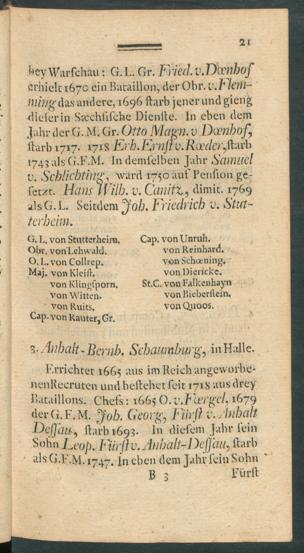 21
bey Warschau: G. L. Gr. Fried. v. Dœnhof
erhielt 1670 ein Bataillon, der Obr. v. Flem-
ming das andere, 1696 starb jener und gieng
dieser in Sæchsische Dienste. In eben dem
Jahr der G. M. Gr. Otto Magn. v Dœnhof,
starb 1717. 1718 Erh. Ernst v. Rœder, starb
1743 als G. F. M. In demselben Jahr Samuel
v. Schlichting, ward 1750 auf Pension ge-
setzt. Hans Wilh. v. Canitz, dimit. 1769
als G. L. Seitdem Joh. Friedrich v. Stut-
terheim.
G. L. von Stutterheim.
Obr. von Lehwald.
O. L. von Collrep.
Maj. von Kleist.
von Klingsporn.
von Witten.
von Ruits.
Cap. von Rauter, Gr.
Cap. von Unruh.
von Reinhard.
von Schœning.
von Diericke.
St. C. von Falkenhayn
von Bieberstein.
von Quoos.
3. Anhalt-Bernb. Schaumburg, in Halle.
Errichtet 1665 aus im Reich angeworbe-
nen Recruten und bestehet seit 1718 aus drey
Bataillons. Chefs: 1665 O. v. Fœrgel, 1679
der G. F. M. Joh. Georg, Fürst v. Anhalt
Dessau, starb 1693. In diesem Jahr sein
Sohn Leop. Fürst v. Anhalt-Dessau, starb
als G. F. M. 1747. In eben dem Jahr sein Sohn
B 3 Fürst